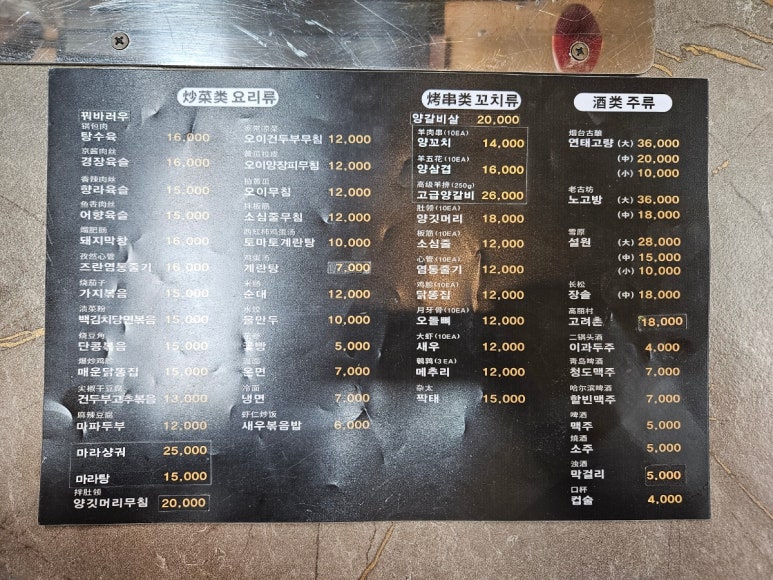 炒菜类 요리류
꿔바러우
锅包肉
탕수육 16,000
京酱肉丝
경장육슬 16,000
香辣肉丝
향라육슬 15,000
鱼香肉丝
어향육슬 15,000
熘肥肠
돼지막창 16,000
孜然心管
즈란염통줄기 16,000
烧茄子
가지볶음 15,000
渍菜粉
백김치당면볶음 15,000
烧豆角
단콩볶음 15,000
爆炒鸡胗
매운닭똥집 15,000
尖椒干豆腐
건두부고추볶음 13,000
麻辣豆腐
마파두부 12,000
마라샹궈 25,000
마라탕 15,000
拌肚领
양깃머리무침 20,000
家常凉菜
오이건두부무침 12,000
黄瓜拉皮
오이양장피무침 12,000
拍黄瓜
오이무침 12,000
拌板筋
소심줄무침 12,000
西红柿鸡蛋汤
토마토계란탕 10,000
鸡蛋汤
계란탕 7,000
米肠
순대 12,000
水饺
물만두 10,000
5,000
7,000
冷面
냉면 7,000
虾仁炒饭
새우볶음밥 6,000
烤串类 꼬치류
양갈비살 20,000
羊肉串(10EA)
양꼬치 14,000
羊五花(10EA)
양삼겹 16,000
高级羊排(250g)
고급양갈비 26,000
肚领(10EA)
양깃머리 18,000
板筋(10EA)
소심줄 12,000
心管(10EA)
염통줄기 12,000
鸡胗(10EA)
닭똥집 12,000
月牙骨(10EA)
오돌뼈 12,000
大虾(10EA)
새우 12,000
鹌鹑(3EA)
메추리 12,000
杂太
짝태 15,000
酒类 주류
烟台古酿
연태고량 (大) 36,000
(中) 20,000
(小) 10,000
老古坊
노고방 (大) 36,000
(中) 18,000
雪原
설원 (大) 28,000
(中) 15,000
(小) 10,000
长松
장송 (中) 18,000
高丽村
고려촌 18,000
二锅头酒
이과두주 4,000
青岛啤酒
청도맥주 7,000
哈尔滨啤酒
할빈맥주 7,000
啤酒
맥주 5,000
燒酒
소주 5,000
浊酒
막걸리 5,000
口杯
컵술 4,000